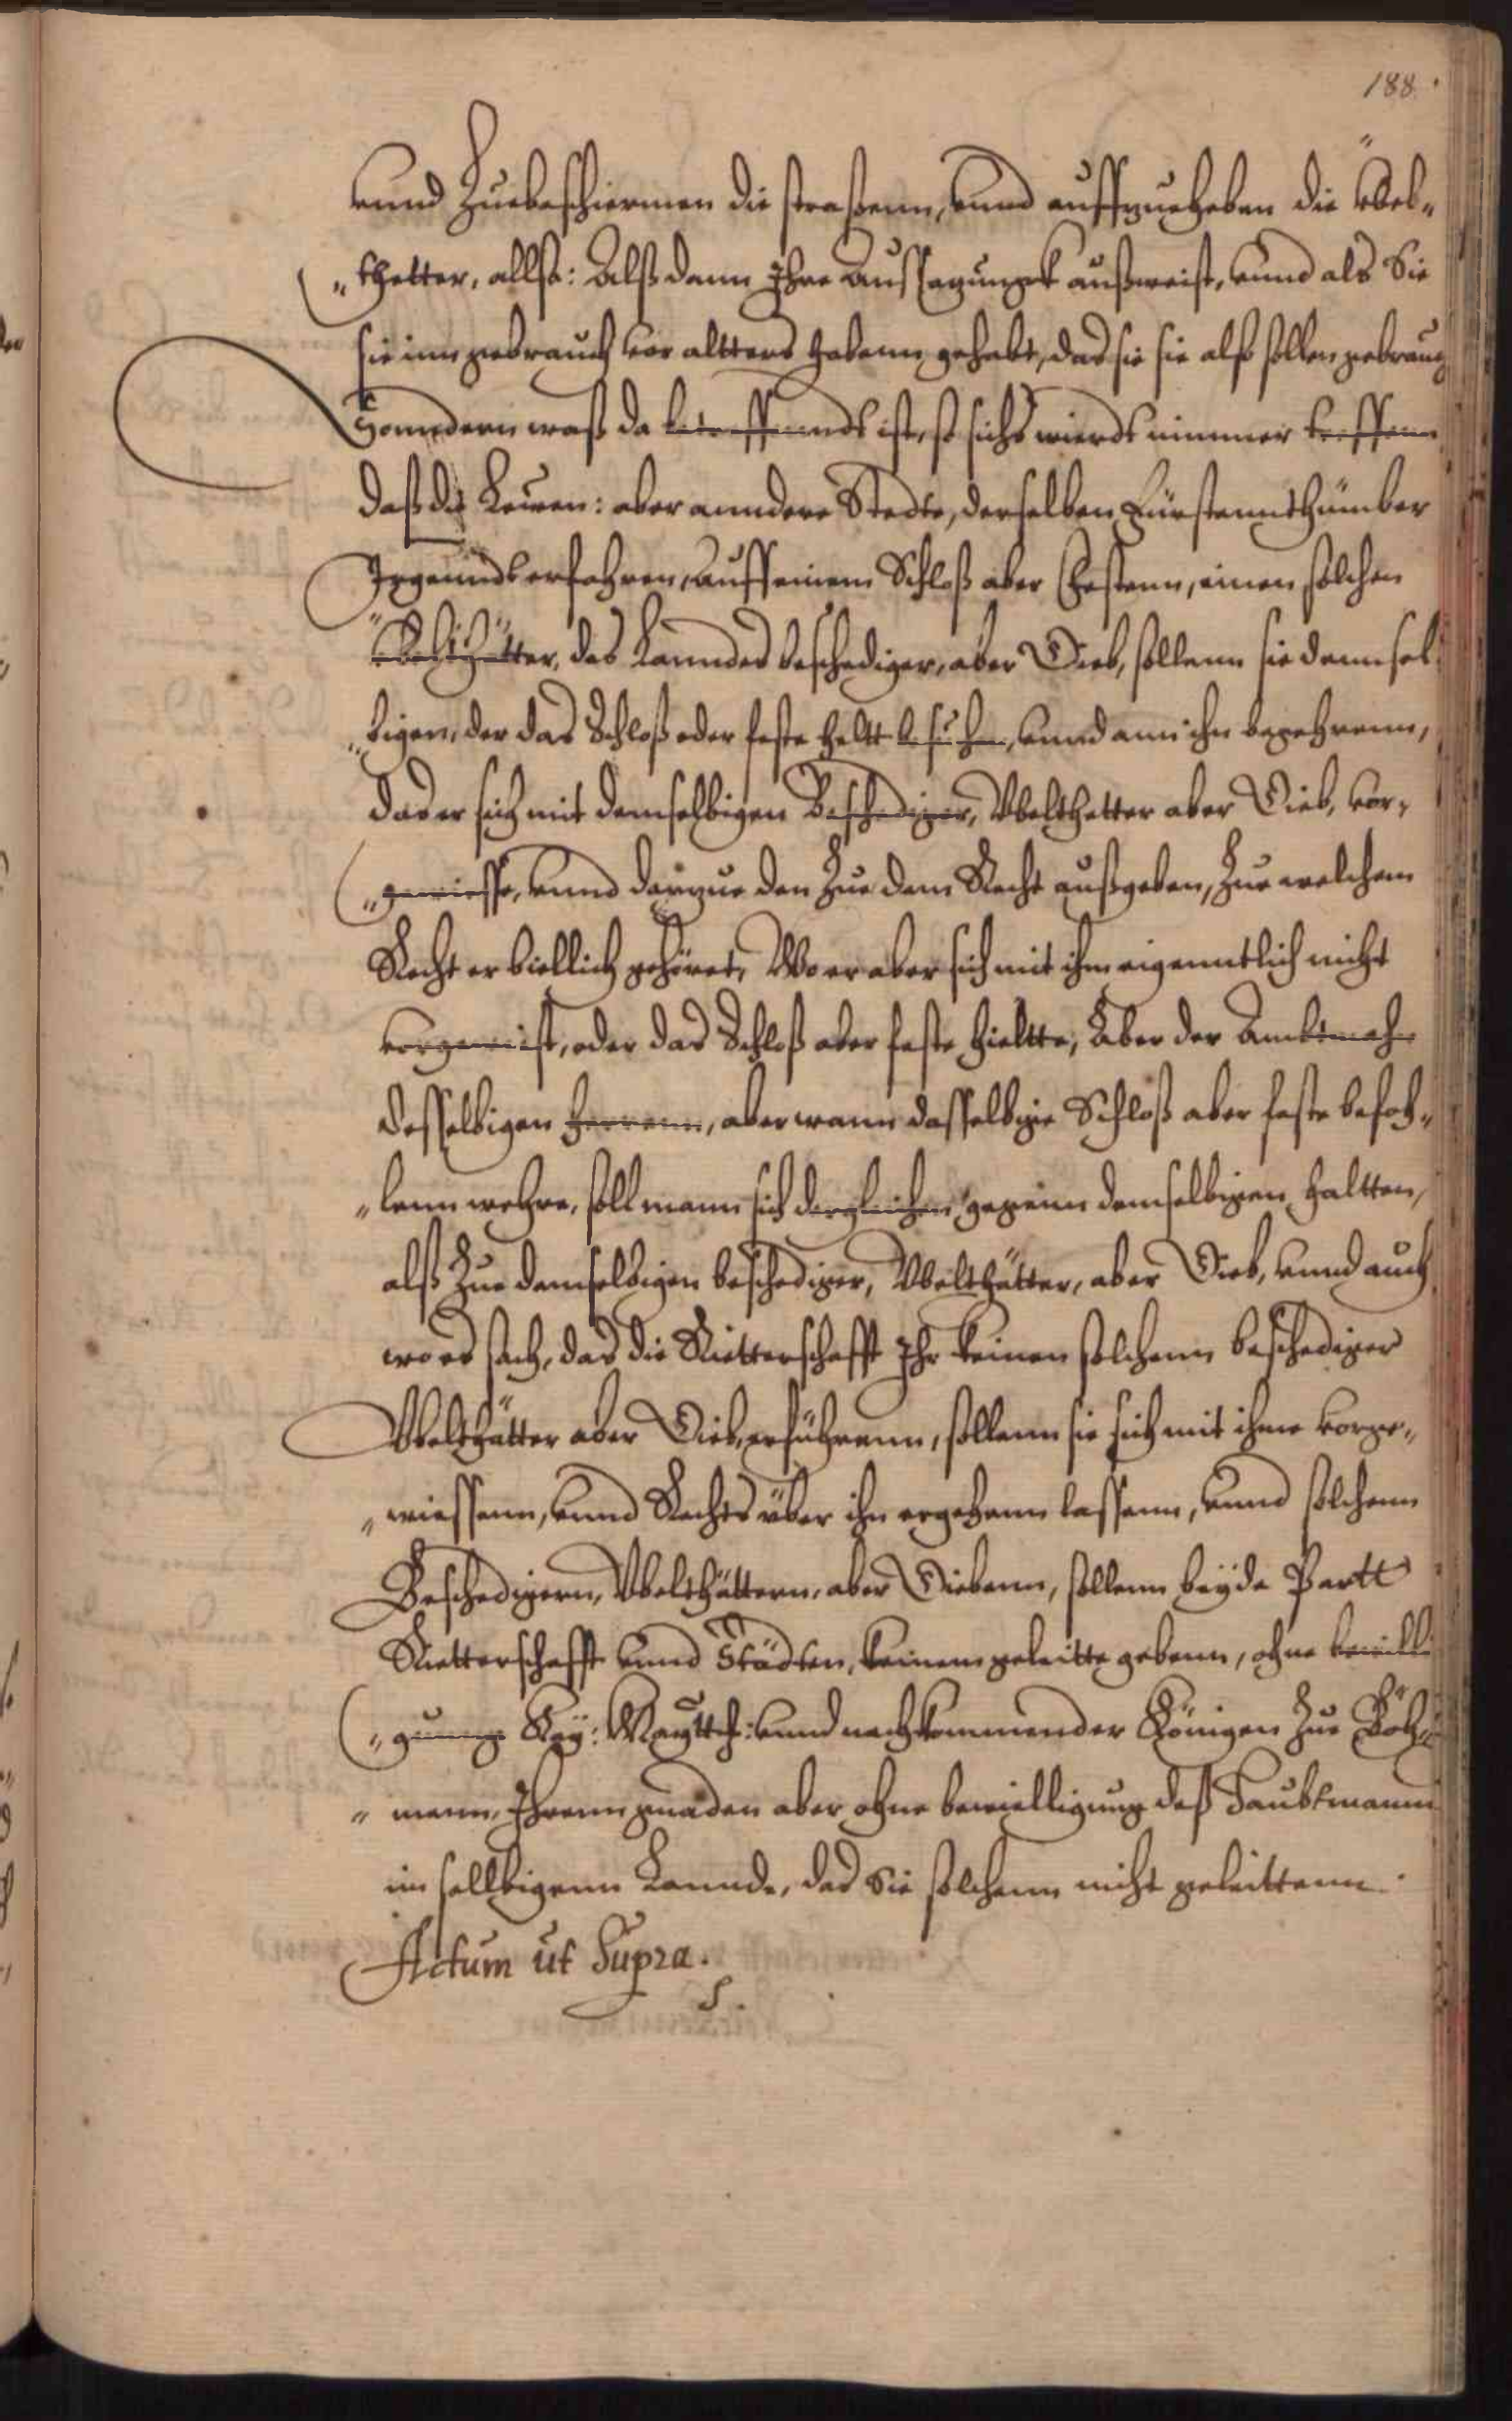 188.
vnnd Zuebeschiermen die straßenn, vnnd auffzueheben die v̈bel„
„thetter, allß: Alß dann Ihre Aussagungk außweist, vnnd als Sie
sie inn gebrauch vor altters habenn gehabt, das sie sie also sollen gebrauch
Sonndern waß da betreffenndt ist, ß sichs wierdt nimmer treffenn
daß die Leuen: aber anndere Stedte, derselben Fürstennthümber
Irgenndt erfahren, auff einem Schloß aber Festenn, einen solchen
V̈belthätter, des Lanndes beschediger, aber Dieb, sollenn sie dennsel
„bigen, der das Schloß oder feste heltt besuchen, vnnd ann ihn begehrenn,
das er sich mit demselbigen Beschediger, Vbelthetter aber Dieb, vor„
„gewiesse, vnnd darzue den Zue dem Recht außgeben, Zue welchem
Recht er biellich gehöret, Wo er aber sich mit ihm eigenntlich nicht
vorgewist, oder das Schloß aber feste hieltte, Aber der Ambtmahn
desselbigen herrenn, aber wann dasselbige Schloß aber feste befoh„
„lenn wehre, soll mann sich dergleichen gegenn demselbigen haltten,
alß Zue demselbigen beschediger, Vbelthätter, aber Dieb, vnnd auch
wo es sach, das die Ritterschafft Ihr keinen solchenn beschediger
Vbelthätter aber Dieb, erführenn, sollenn sie sich mit ihme vorge„
„wiessenn, vnnd Rechts über ihn ergehenn lassenn, vnnd solchenn
Beschedigern, Vbelthättern, aber Diebenn, sollenn beyde Partt
Ritterschafft vnnd Städten, keinem geleitte gebenn, ohne bewilli
„gunng Kay: Maytth: vnnd nachkommender Königen Zue Böh„
„menn, Ihrenn gnaden aber ohne bewielligung deß Haubtmanns
im sellbigenn Lannde, das Sie solchenn nicht geleittenn.
Actum ut Supra.